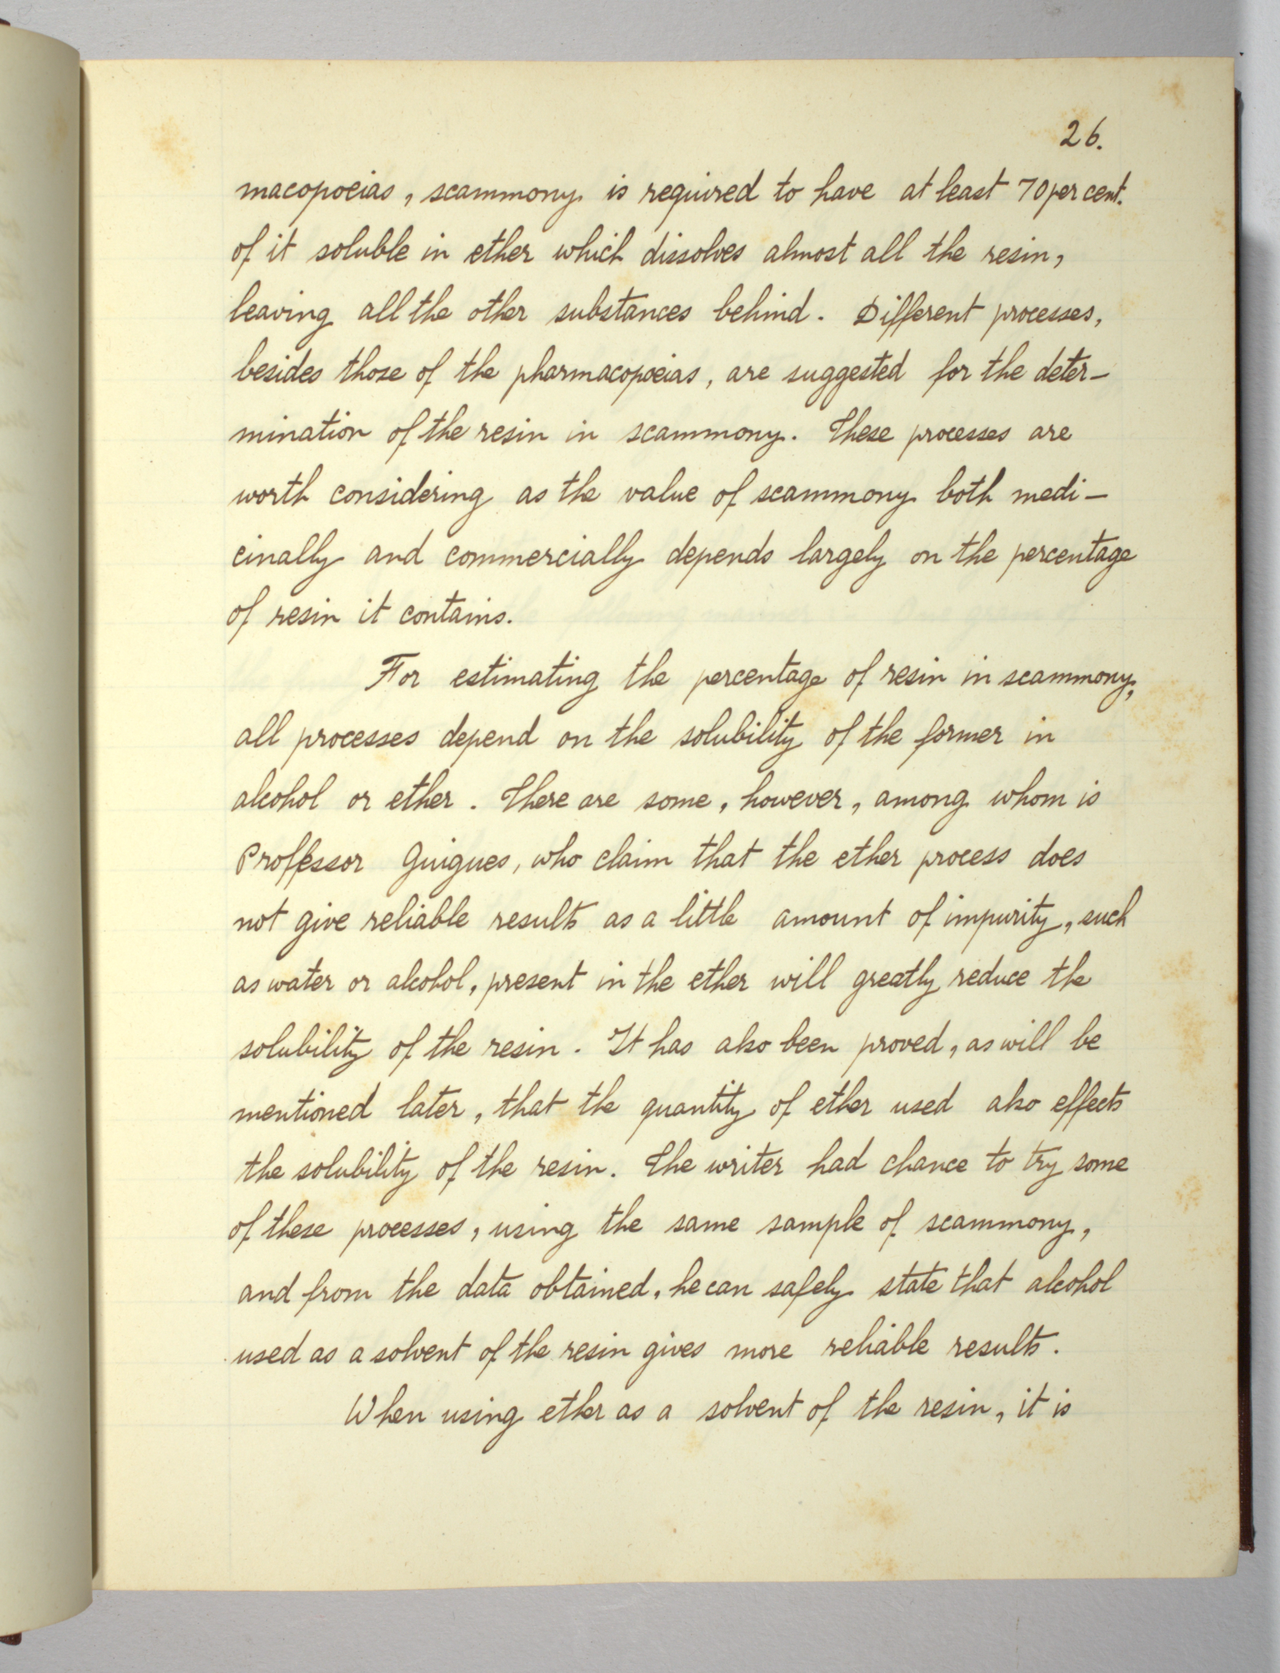 26.
macopoeias, scammony is required to have at least 70 per cent.
of it soluble in ether which dissolves almost all the resin,
leaving all the other substances behind. Different processes,
besides those of the pharmacopoeias, are suggested for the deter-
mination of the resin in scammony. These processes are
worth considering as the value of scammony both medi-
cinally and commercially depends largely on the percentage
of resin it contains.
For estimating the percentage of resin in scammony,
all processes depend on the solubility of the former in
alcohol or ether. There are some, however, among whom is
Professor Guigues, who claim that the ether process does
not give reliable results as a little amount of impurity, such
as water or alcohol, present in the ether will greatly reduce the
solubility of the resin. It has also been proved, as will be
mentioned later, that the quantity of ether used also effects
the solubility of the resin. The writer had chance to try some
of these processes, using the same sample of scammony,
and from the data obtained, he can safely state that alcohol
used as a solvent of the resin gives more reliable results.
When using ether as a solvent of the resin, it is